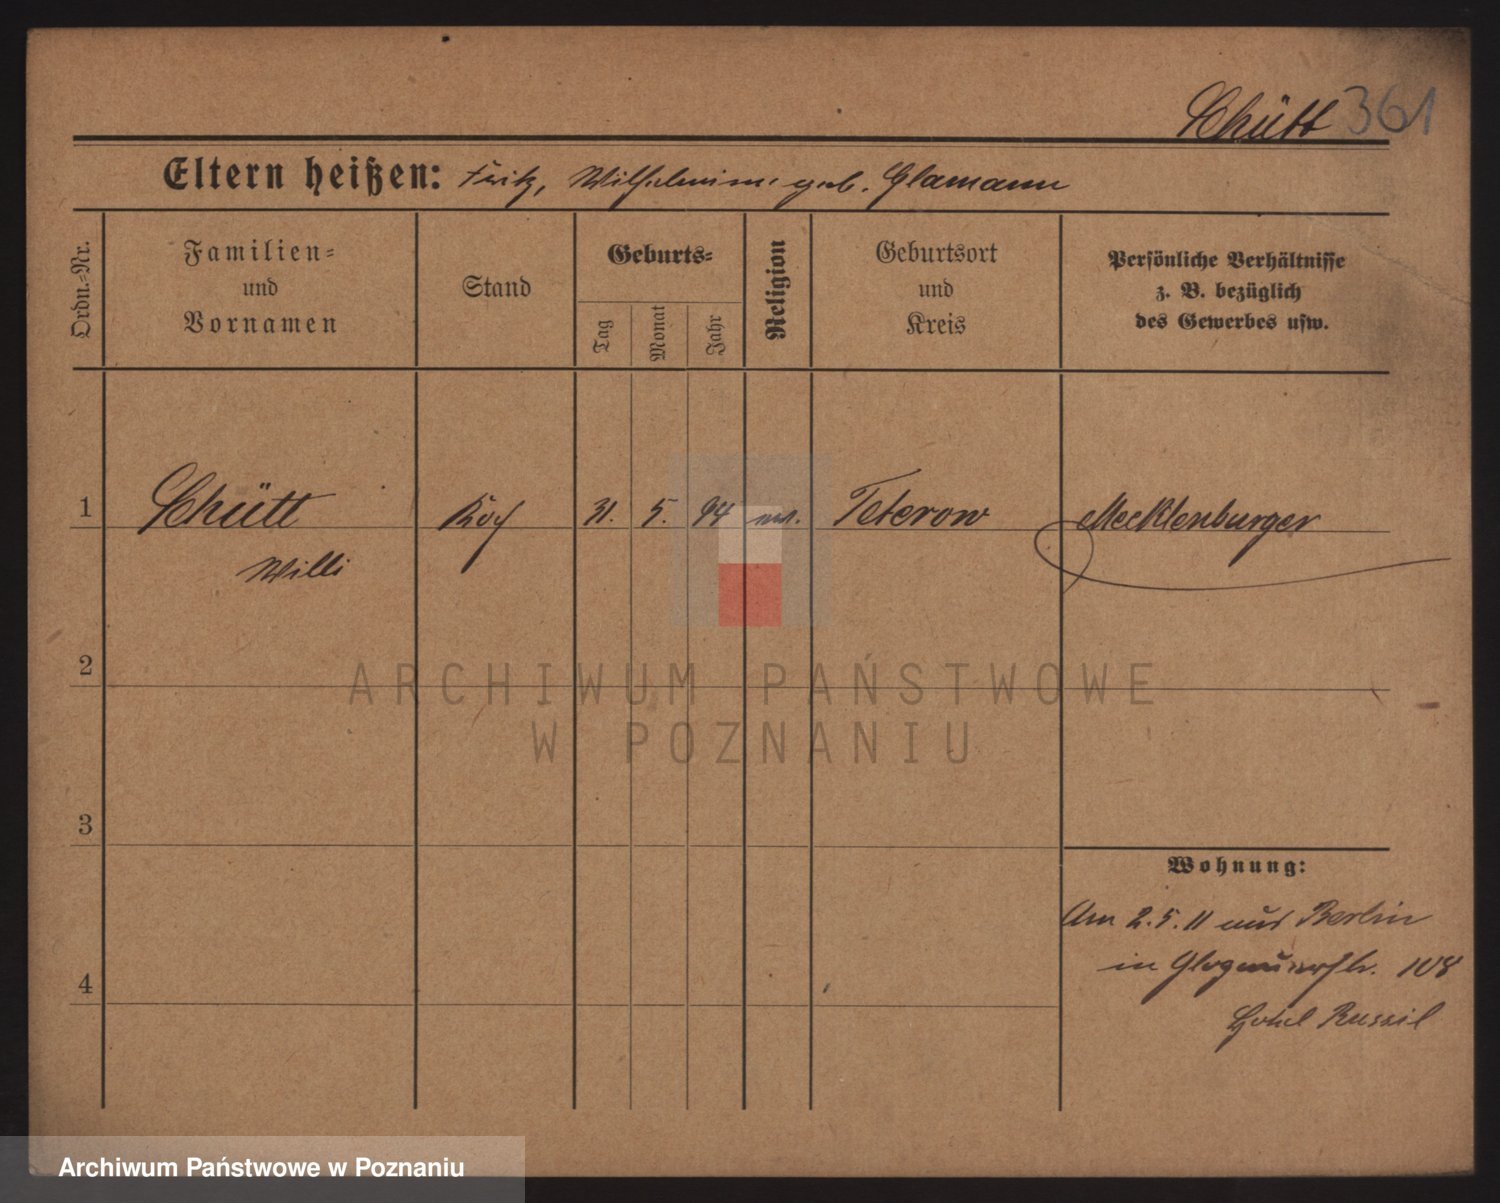 Schütt 361
Eltern heißen: Fritz, Wilhelmine geb. Glamann
Ordn.-Nr.
Familien-
und
Vornamen
Stand
Geburts-
Tag
Monat
Jahr
Religion
Geburtsort
und
Kreis
Persönliche Verhältnisse
z. B. bezüglich
des Gewerbes usw.
1 Schütt Koch 31. 5. 94 ev. Teterow Mecklenburger
Willi
2
3
4
Wohnung:
Am 2.5.11 aus Berlin
in Glogauerstr. 108
Hotel
ARCHIWUM PAŃSTWOWE
W POZNANIU
Archiwum Państwowe w Poznaniu